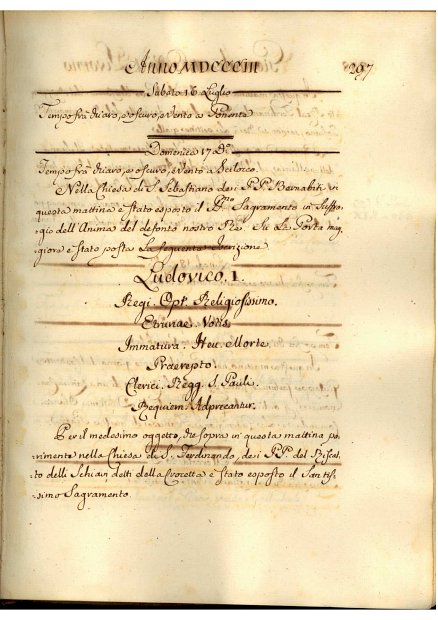 Anno MDCCCIII 297
Sabato 16 Luglio
Tempo frà chiaro, e oscuro, e Vento a Ponente
Domenica 17 do.
Tempo frà chiaro, e oscuro, e Vento a Scilocco.
Nella Chiesa di S. Sebastiano dei P.P. Bernabiti vi
questa mattina è stato esposto il SSmo Sagramento in Suffra-
gio dell'Anima del defonto nostro Rè. Su La Porta mag-
giore è stato posta La seguente Iscrizione
Ludovico. I.
Regi. Opt. Religiosissimo.
Etruriae. Votis.
Immatura. Heu. Morte.
Praerepto.
Clerici. Regg. S. Pauli.
Requiem. Adprecantur.
Per il medesimo oggetto, che sopra in questa mattina pa-
rimente nella Chiesa di S. Ferdinando, dei P.P. del Riscat-
to delli Schiavi detti della Crocetta è stato esposto il Santis-
simo Sagramento.